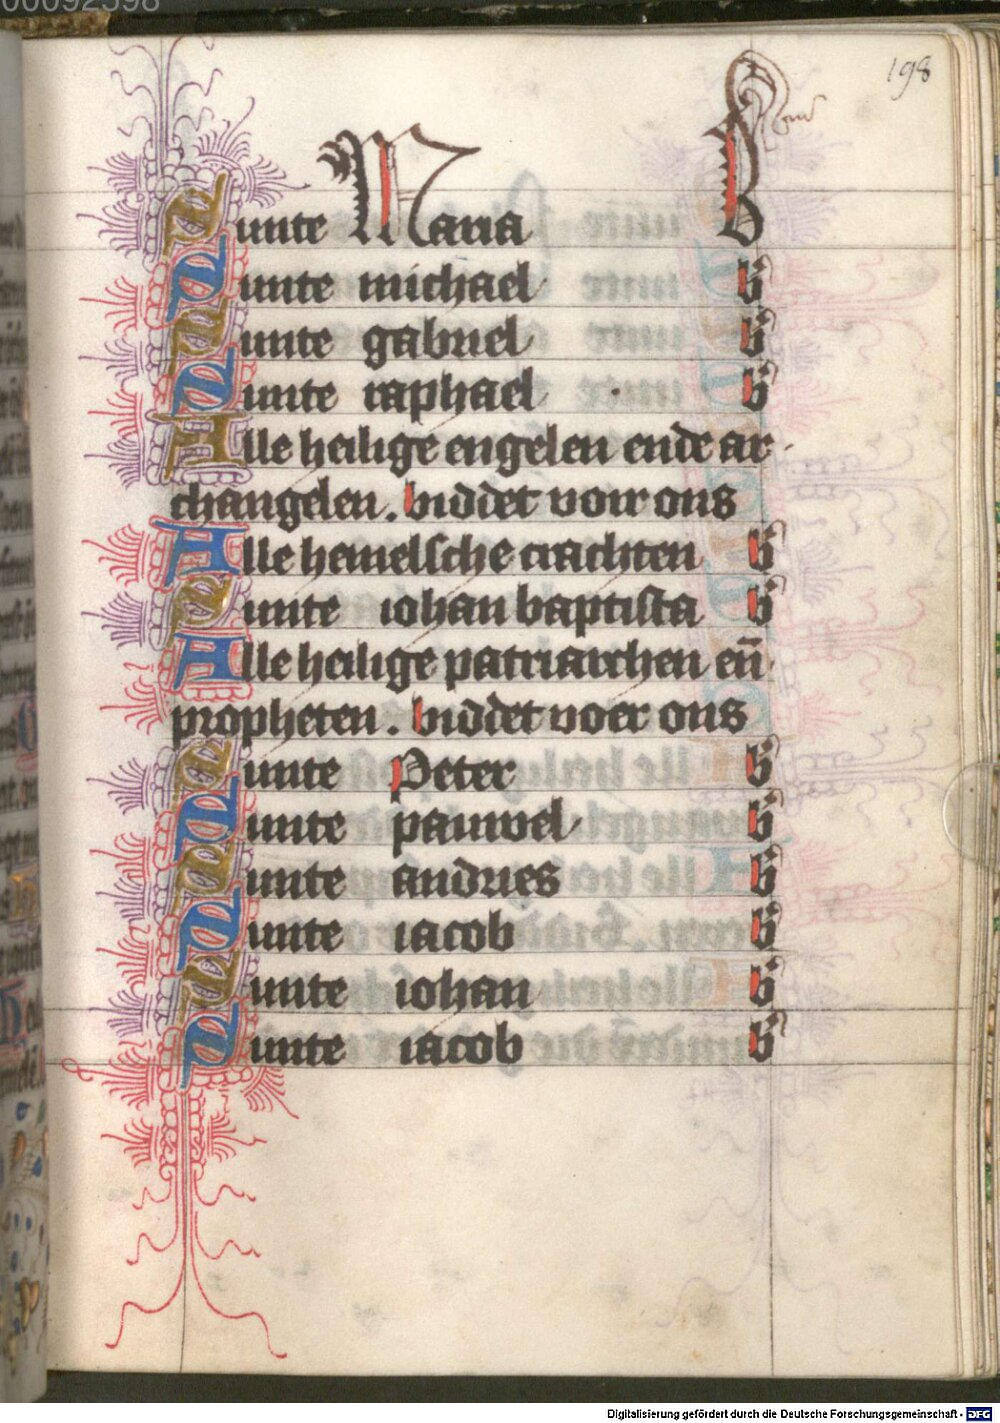 00092598
198
Sunte Maria B
Sunte michael b
Sunte gabriel b
Sunte raphael b
Alle heilige engelen ende ar
changelen. biddet voir ons
Alle hemelsche crachten b
Sunte iohan baptista b
Alle heilige patriarchen en̄
propheten. biddet voer ons
Sunte Peter b
Sunte pauwel b
Sunte andries b
Sunte iacob b
Sunte iohan b
Sunte iacob b
Digitalisierung gefördert durch die Deutsche Forschungsgemeinschaft - DFG